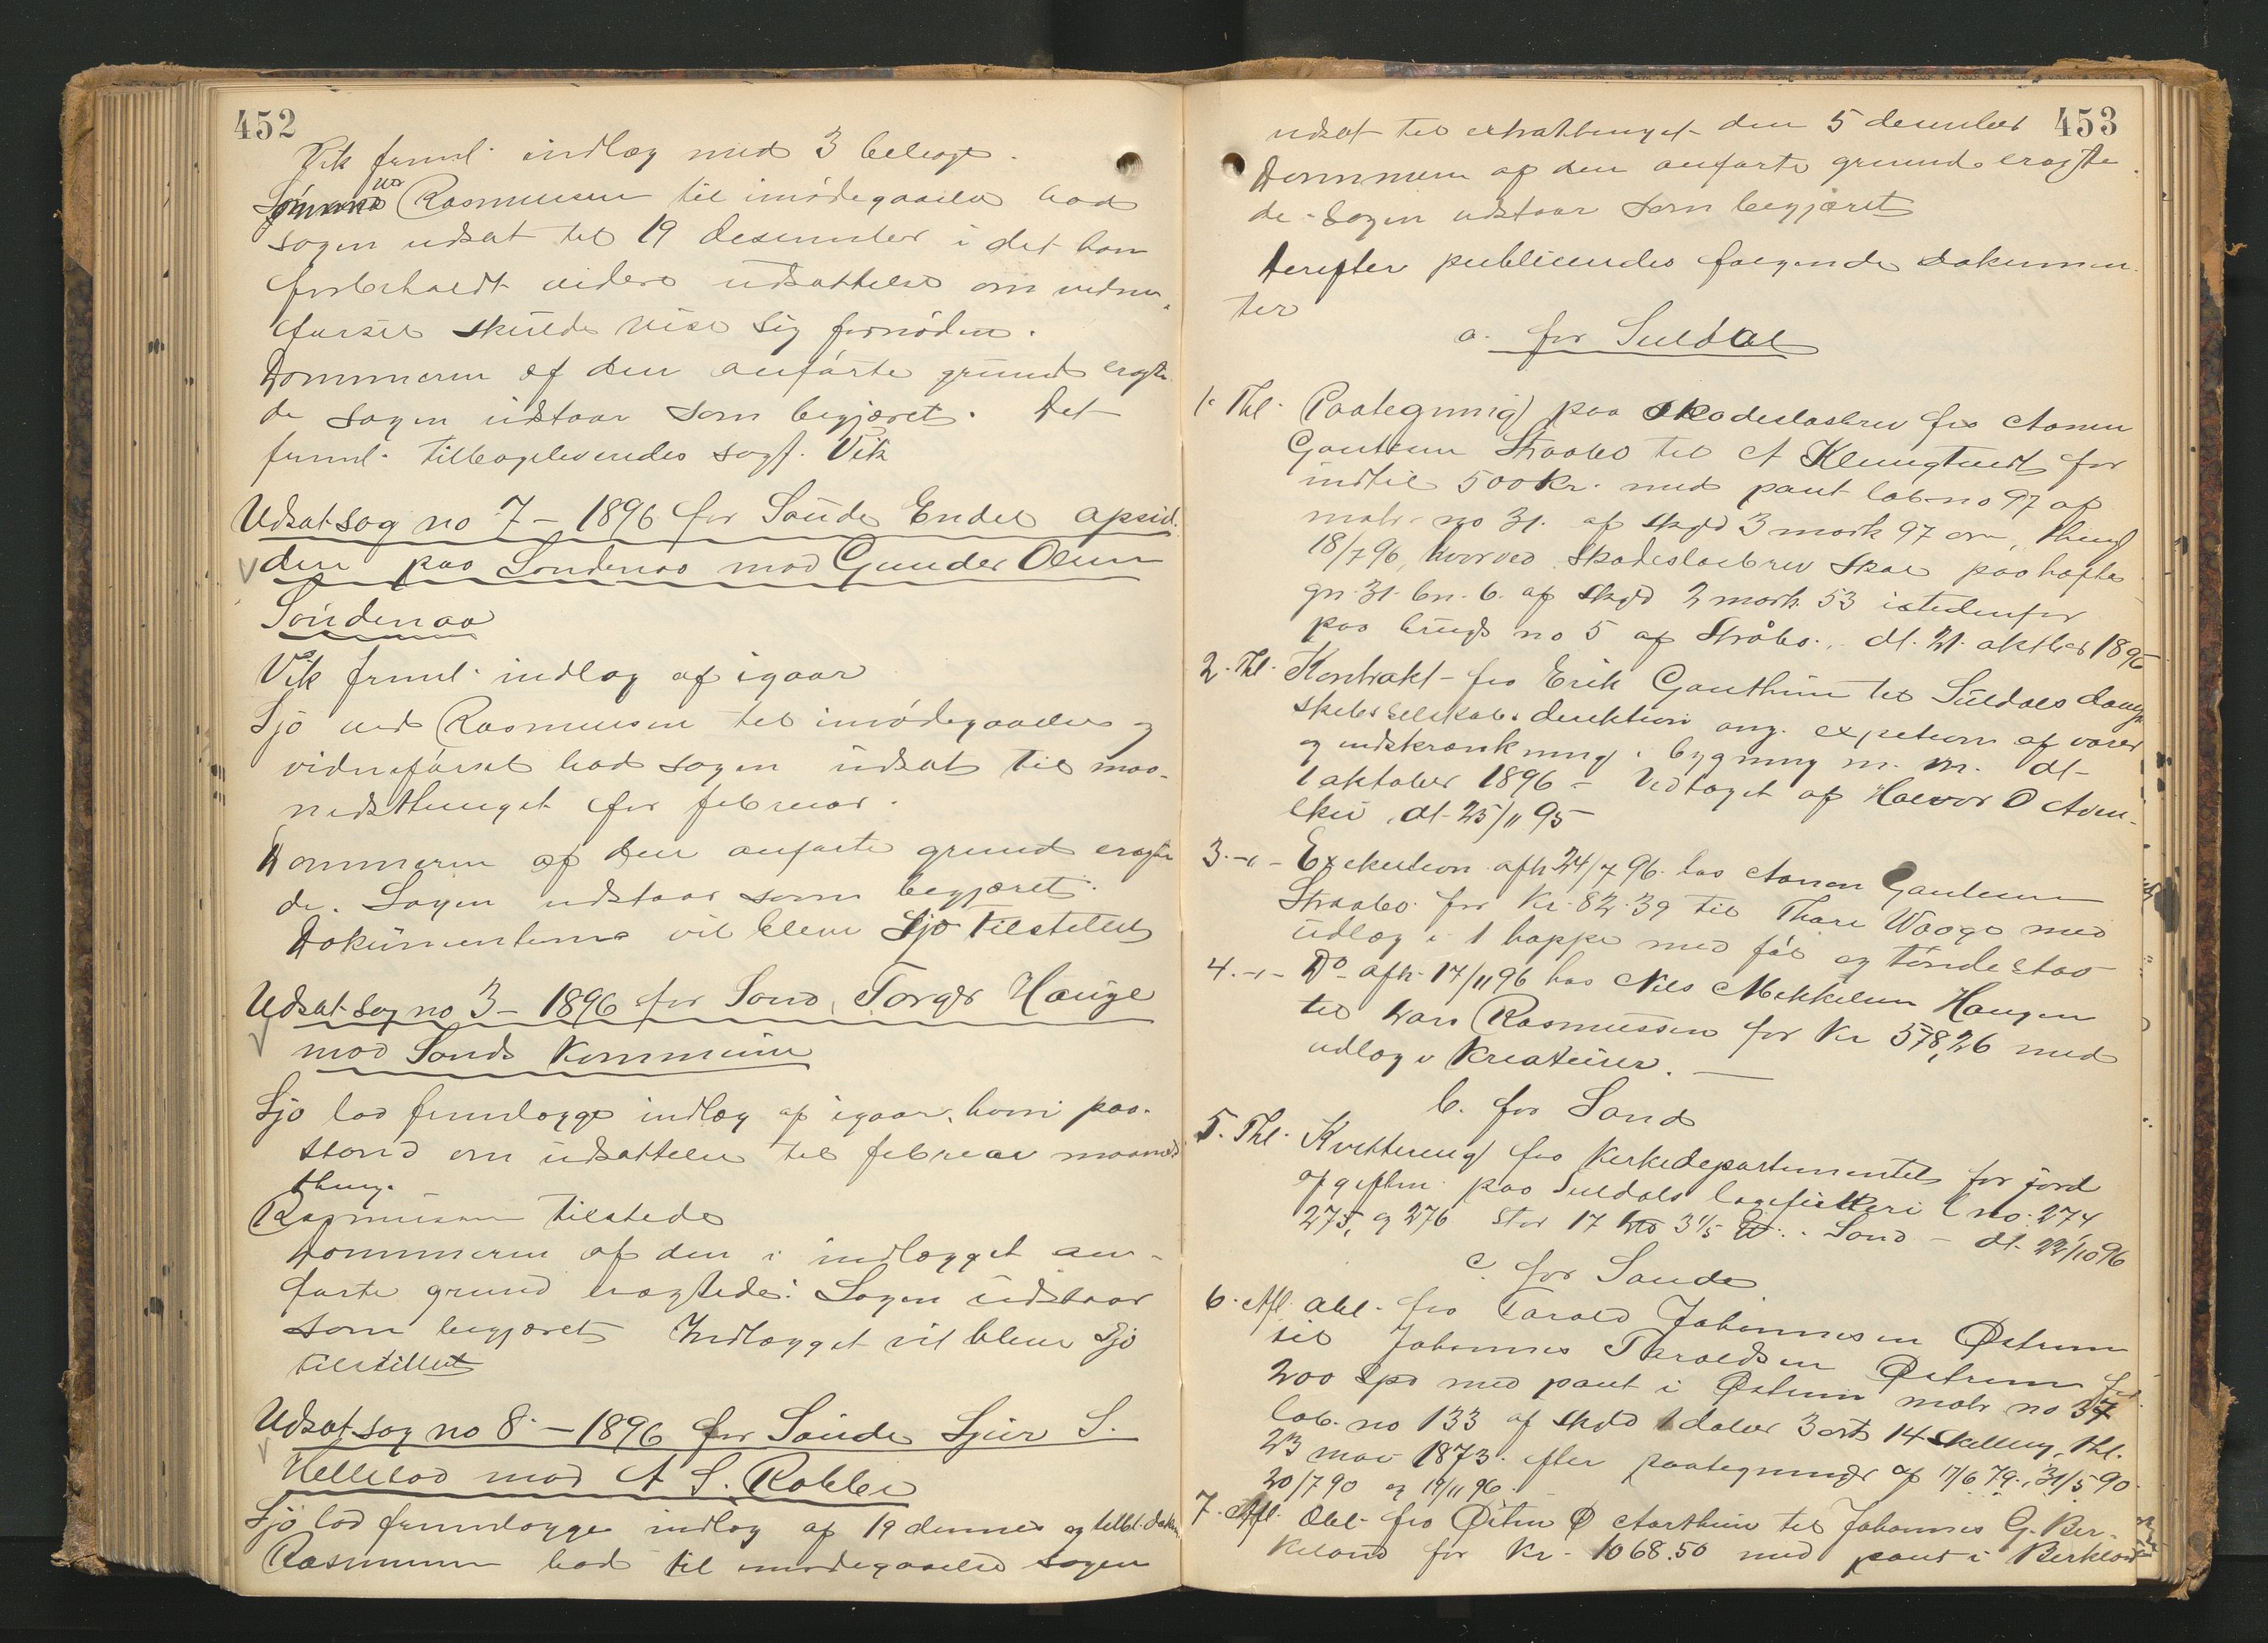 452
Vik freml. indlæg med 3 belage.
Rasmussen til imødegaaelse bad
sagen udsat til 19 desember i det han
forbeholdt videre udsættelse om vidne-
førsel skulde vise sig fornøden.
Dommeren af den anførte grund eragte-
de sagen udstaar som begjæret. Det
freml. tilbageleveredes sagf. Vik
Udsat sag no 7 - 1896 for Saude Endel
paa Søndenaa mod Gunder Olsen
Søndenaa
Vik freml. indlæg af igaar
Sjo ved Rasmussen til imødegaaelse og
vidneførsel bad sagen udsat til maa-
nedsthinget for februar.
Dommeren af den anførte grund eragte-
de. Sagen udstaar som begjæret.
Dokumenterne vil blive Sjo tilstillet
Udsat sag no 3 - 1896 for Sand, Torger Hauge
mod Sands kommune
Sjo lod fremlægge indlæg af igaar, hvori paa-
stand om udsættelse til februar maaneds
thing.
Rasmussen tilstede
Dommeren af den i indlægget an-
førte grund eragtede: Sagen udstaar
som begjæret Indlægget vil blive Sjo
tilstillet
Udsat sag no 8 - 1896 for Saude Sjur S.
Helleland mod A S. Rabbe
Sjo lod fremlægge indlæg af 19 dennes og tilbl. dokum.
Rasmussen bad til imødegaaelse sagen
453
udsat til extrathinget den 5 december
Dommeren af den anførte grund eragte-
de. Sagen udstaar som begjæret
Derefter publiceredes følgende dokumen-
ter
a. for Suldal
1. Thl. Paategning paa skadesløsbrev fra Aanen
Gautesen Straabø til A Klungtvedt for
indtil 500 kr. med pant løb-no 97 af
matr-no 31. af skyld 3 mark 97 øre, thingl
18/7 96, hvorved skadesløsbrev skal paahæfte
gn. 31. bn. 6. af skyld 2 mark 53 istedenfor
paa brugs no 5 af Stråbø. dt. 21. oktbr 1896
2. Thl. Kontrakt fra Erik Gauthun til Suldals damp-
skibsselskabs direktion ang. expetion af varer
og indskrænkning i bygning m. m. dt-
1 oktober 1896 - Vedtaget af Halvor O
dt- 25/11 95
3. -"- Exekution afh 24/7 96 hos Aanen Gautesen
Straabø for Kr. 82.39 til Thore Waage med
udlæg i 1 hoppe med føl og tøndestav
4. -"- Do afh- 17/11 96 hos Nils Mikkelsen Haugen
til Lars Rasmussen for Kr 578,26 med
udlæg i kreaturer.
b. for Sand
5. Thl. Kvittering fra Kirkedepartementet for jord
afgiften paa Suldals lagfisteri l no. 274,
275, og 276 stor 17 3 1/5 . Sand - dt. 22/10 96
c. for Saude
6. Afl. obl. fra Tarald Johannesen Østrem
til Johannes Taraldsen Østrem for
200 Spd med pant i Østrem matr no 37
løb. no 133 af skyld 1 daler 3 ort 14 skilling, thl.
23 mai 1873. efter paategninger af 17/6 79., 31/5 90
30/7 90 og 19/11 96.
7. Afl. Obl. fra Østen Ø Aarthun til Johannes G. Ber-
keland for Kr. 1068.50 med pant i Berkland